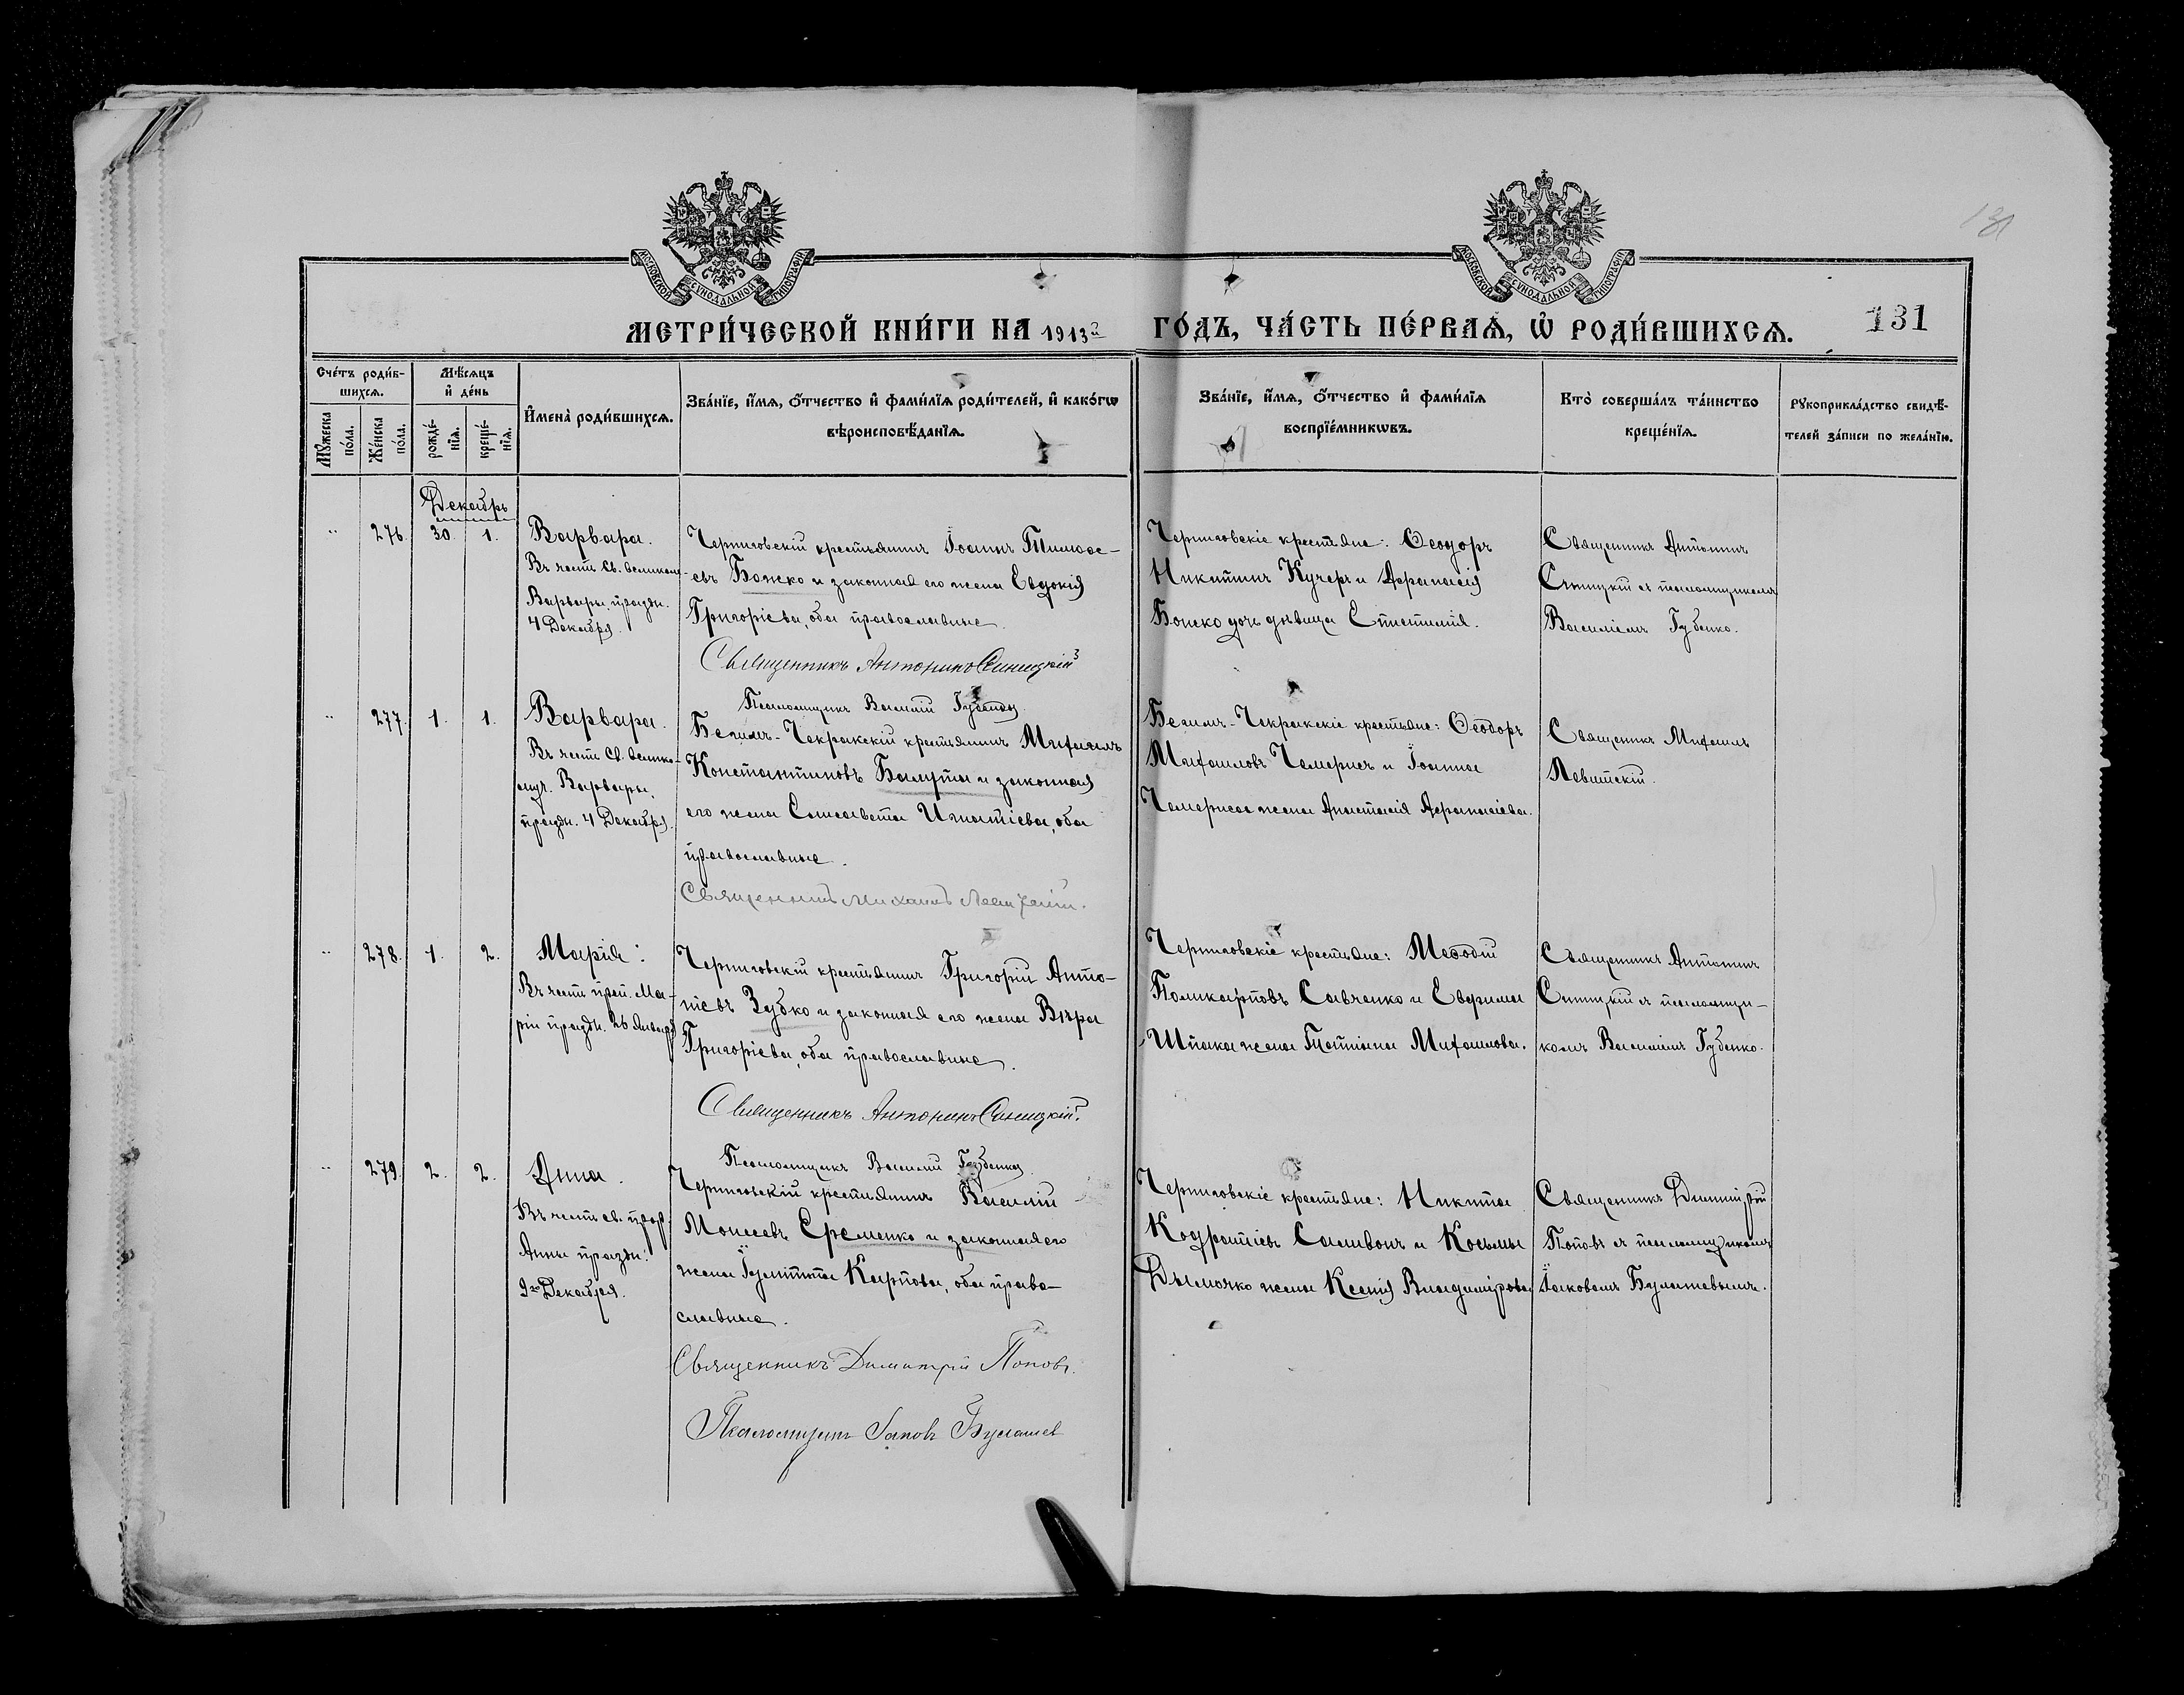 131
МОСКОВСКОЙ СѴНОДАЛЬНОЙ ТИПОГРАФІИ
МОСКОВСКОЙ СѴНОДАЛЬНОЙ ТИПОГРАФІИ
МЕТРИ́ЧЕСКОЙ КНИ́ГИ НА 1913й ГО́ДЪ, ЧА́СТЬ ПЕ́РВАѦ, Ѡ҆ РОДИ́ВШИХСѦ. 131
Сче́тъ роди́в-
шихсѧ.
Мꙋ́жеска
по́ла.
Же́нска
по́ла.
Мѣ́сѧцъ
и҆ де́нь
рожде́-
нїѧ.
креще́-
нїѧ.
И҆мена̀ роди́вшихсѧ.
Зва́нїе, и҆́мѧ, ѻ҆́тчество и҆ фами́лїѧ роди́телей, и҆ како́гѡ
вѣроисповѣ́данїѧ.
Зва́нїе, и҆́мѧ, ѻ҆́тчество и҆ фами́лїѧ
воспрїе́мникѡвъ.
Кто̀ соверша́лъ та́инство
креще́нїѧ.
Рꙋкоприкла́дство свидѣ́-
телей за́писи по жела́нїю.
Декабрь
276. 30. 1. Варвара.
Въ честь Св. великом-
Варвары, праздн.
4 Декабря.
Черниговскій крестьянинъ Іоаннъ Тимоѳе-
евъ Божко и законная его жена Евдокія
Григоріева, оба православные.
Священникъ Антонинъ Синицкій
Псаломщикъ Василій Губенко
Черниговскіе крестьяне: Ѳеодоръ
Никитинъ Кучеръ и Аѳанасія
Божко дочь дѣвица Епистимія.
Священникъ Антонинъ
Синицкій съ псаломщикомъ
Василіемъ Губенко.
277. 1. 1. Варвара.
Въ честь Св. велико-
муч. Варвары,
праздн. 4 Декабря.
Бегимъ-Чокракскій крестьянинъ Михаилъ
Константиновъ Балута и законная
его жена Елисавета Игнатіева, оба
православные.
Священникъ Михаилъ Левитскій.
Бегимъ-Чокракскіе крестьяне: Ѳеодоръ
Михаиловъ Чемерисъ и Іоанна
Чемериса жена Анастасія Аѳанасіева.
Священникъ Михаилъ
Левитскій.
278. 1. 2. Марія:
Въ честь преп. Ма-
ріи праздн. 26 Января
Черниговскій крестьянинъ Григорій Анто-
ніевъ Зубко и законная его жена Вѣра
Григоріева, оба православные.
Священникъ Антонинъ Синицкій.
Псаломщикъ Василій Губенко.
Черниговскіе крестьяне: Меѳодій
Поликарповъ Савченко и Евфима
Шпака жена Татіана Михаилова.
Священникъ Антонинъ
Синицкій съ псаломщи-
комъ Василіемъ Губенко.
279. 2. 2. Анна.
Въ честь св. прор.
Анны праздн.
9го Декабря.
Черниговскій крестьянинъ Василій
Моисеевъ Еременко и законная его
жена Іулитта Карпова, оба право-
славные.
Священникъ Димитрій Поповъ.
Псаломщикъ Іаковъ Булашев
Черниговскіе крестьяне: Никита
Кодратіевъ Саливонъ и Косьмы
Дымочко жена Ксенія Владимірова
Священникъ Димитрій
Поповъ съ псаломщикомъ
Іаковомъ Булашевымъ.